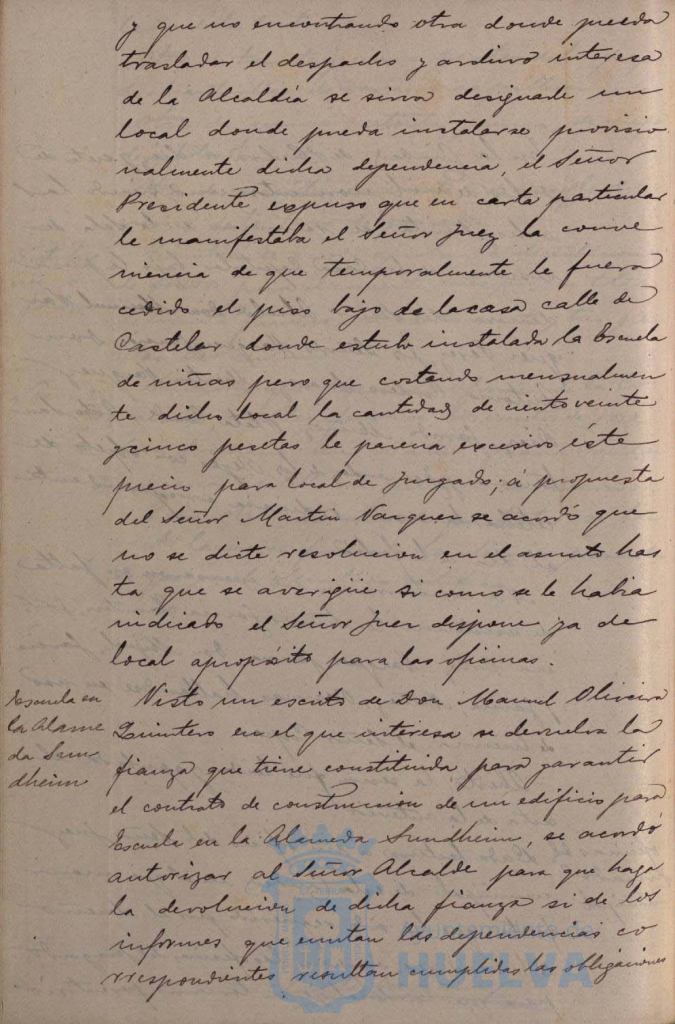 y que no encontrando otra donde pueda
trasladar el despacho y archivo interesa
de la Alcaldía se sirva designarle un
local donde pueda instalarse provisio
nalmente dicha dependencia, el Señor
Presidente expuso que en carta particular
le manifestaba el Señor Juez la conve
niencia de que temporalmente le fuera
cedido el piso bajo de la casa calle de
Castelar donde estubo instalada la Escuela
de niñas pero que costando mensualmen
te dicho local la cantidad de ciento veinte
y cinco pesetas le parecia excesivo éste
precio para local de Juzgado; á propuesta
del Señor Martin Vazquez se acordó que
no se dicte resolucion en el asunto has
ta que se averigüe si como se le habia
indicado el Señor Juez dispone ya de
local apropósito para las oficinas.
Escuela en
la Alame
da Sun
dheim
Visto un escrito de Don Manuel Oliveira
Quintero en el que interesa se devuelva la
fianza que tiene constituida para garantir
el contrato de construccion de un edificio para
Escuela en la Alameda Sundheim, se acordó
autorizar al Señor Alcalde para que haga
la devolucion de dicha fianza si de los
informes que emitan las dependencias co
rrespondientes resultan cumplidas las obligaciones
HUELVA